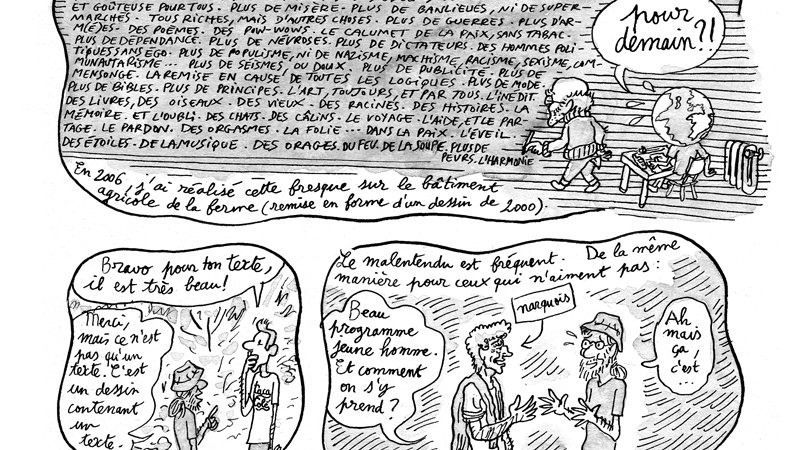 ET GOÛTEUSE POUR TOUS. PLUS DE MISÈRE. PLUS DE BANLIEUES, NI DE SUPER-
MARCHÉS. TOUS RICHES, MAIS D'AUTRES CHOSES. PLUS DE GUERRES. PLUS D'AR-
M(É)ES. DES POÈMES. DES POW-WOWS. LE CALUMET DE LA PAIX, SANS TABAC.
PLUS DE DÉPENDANCE. PLUS DE NÉVROSES. PLUS DE DICTATEURS. DES HOMMES POLI-
TIQUES SANS EGO. PLUS DE POPULISME, NI DE NAZISME, MACHISME, RACISME, SEXISME, COM-
MUNAUTARISME... PLUS DE SEÏSMES, OU DOUX. PLUS DE PUBLICITÉ. PLUS DE
MENSONGE. LA REMISE EN CAUSE DE TOUTES LES LOGIQUES. PLUS DE MODE.
PLUS DE BIBLES. PLUS DE PRINCIPES. L'ART, TOUJOURS, ET PAR TOUS. L'INÉDIT.
DES LIVRES, DES OISEAUX. DES VIEUX. DES RACINES. DES HISTOIRES. LA
MÉMOIRE. ET L'OUBLI. DES CHATS. DES CÂLINS. LE VOYAGE. L'AIDE, ET LE PAR-
TAGE. LE PARDON. DES ORGASMES. LA FOLIE... DANS LA PAIX. L'ÉVEIL.
DES ÉTOILES. DE LA MUSIQUE. DES ORAGES. DU FEU. DE LA SOUPE. PLUS DE
PEURS. L'HARMONIE
pour
demain?!
En 2006, j'ai réalisé cette fresque sur le bâtiment
agricole de la ferme (remise en forme d'un dessin de 2000).
Bravo pour ton texte,
il est très beau!
Merci,
mais ce n'est
pas qu'un
texte. C'est
un dessin
contenant
un
texte.
Le malentendu est fréquent. De la même
manière pour ceux qui n'aiment pas:
Beau
programme
jeune homme.
Et comment
on s'y
prend?
narquois
Ah
mais
ça,
c'est
...